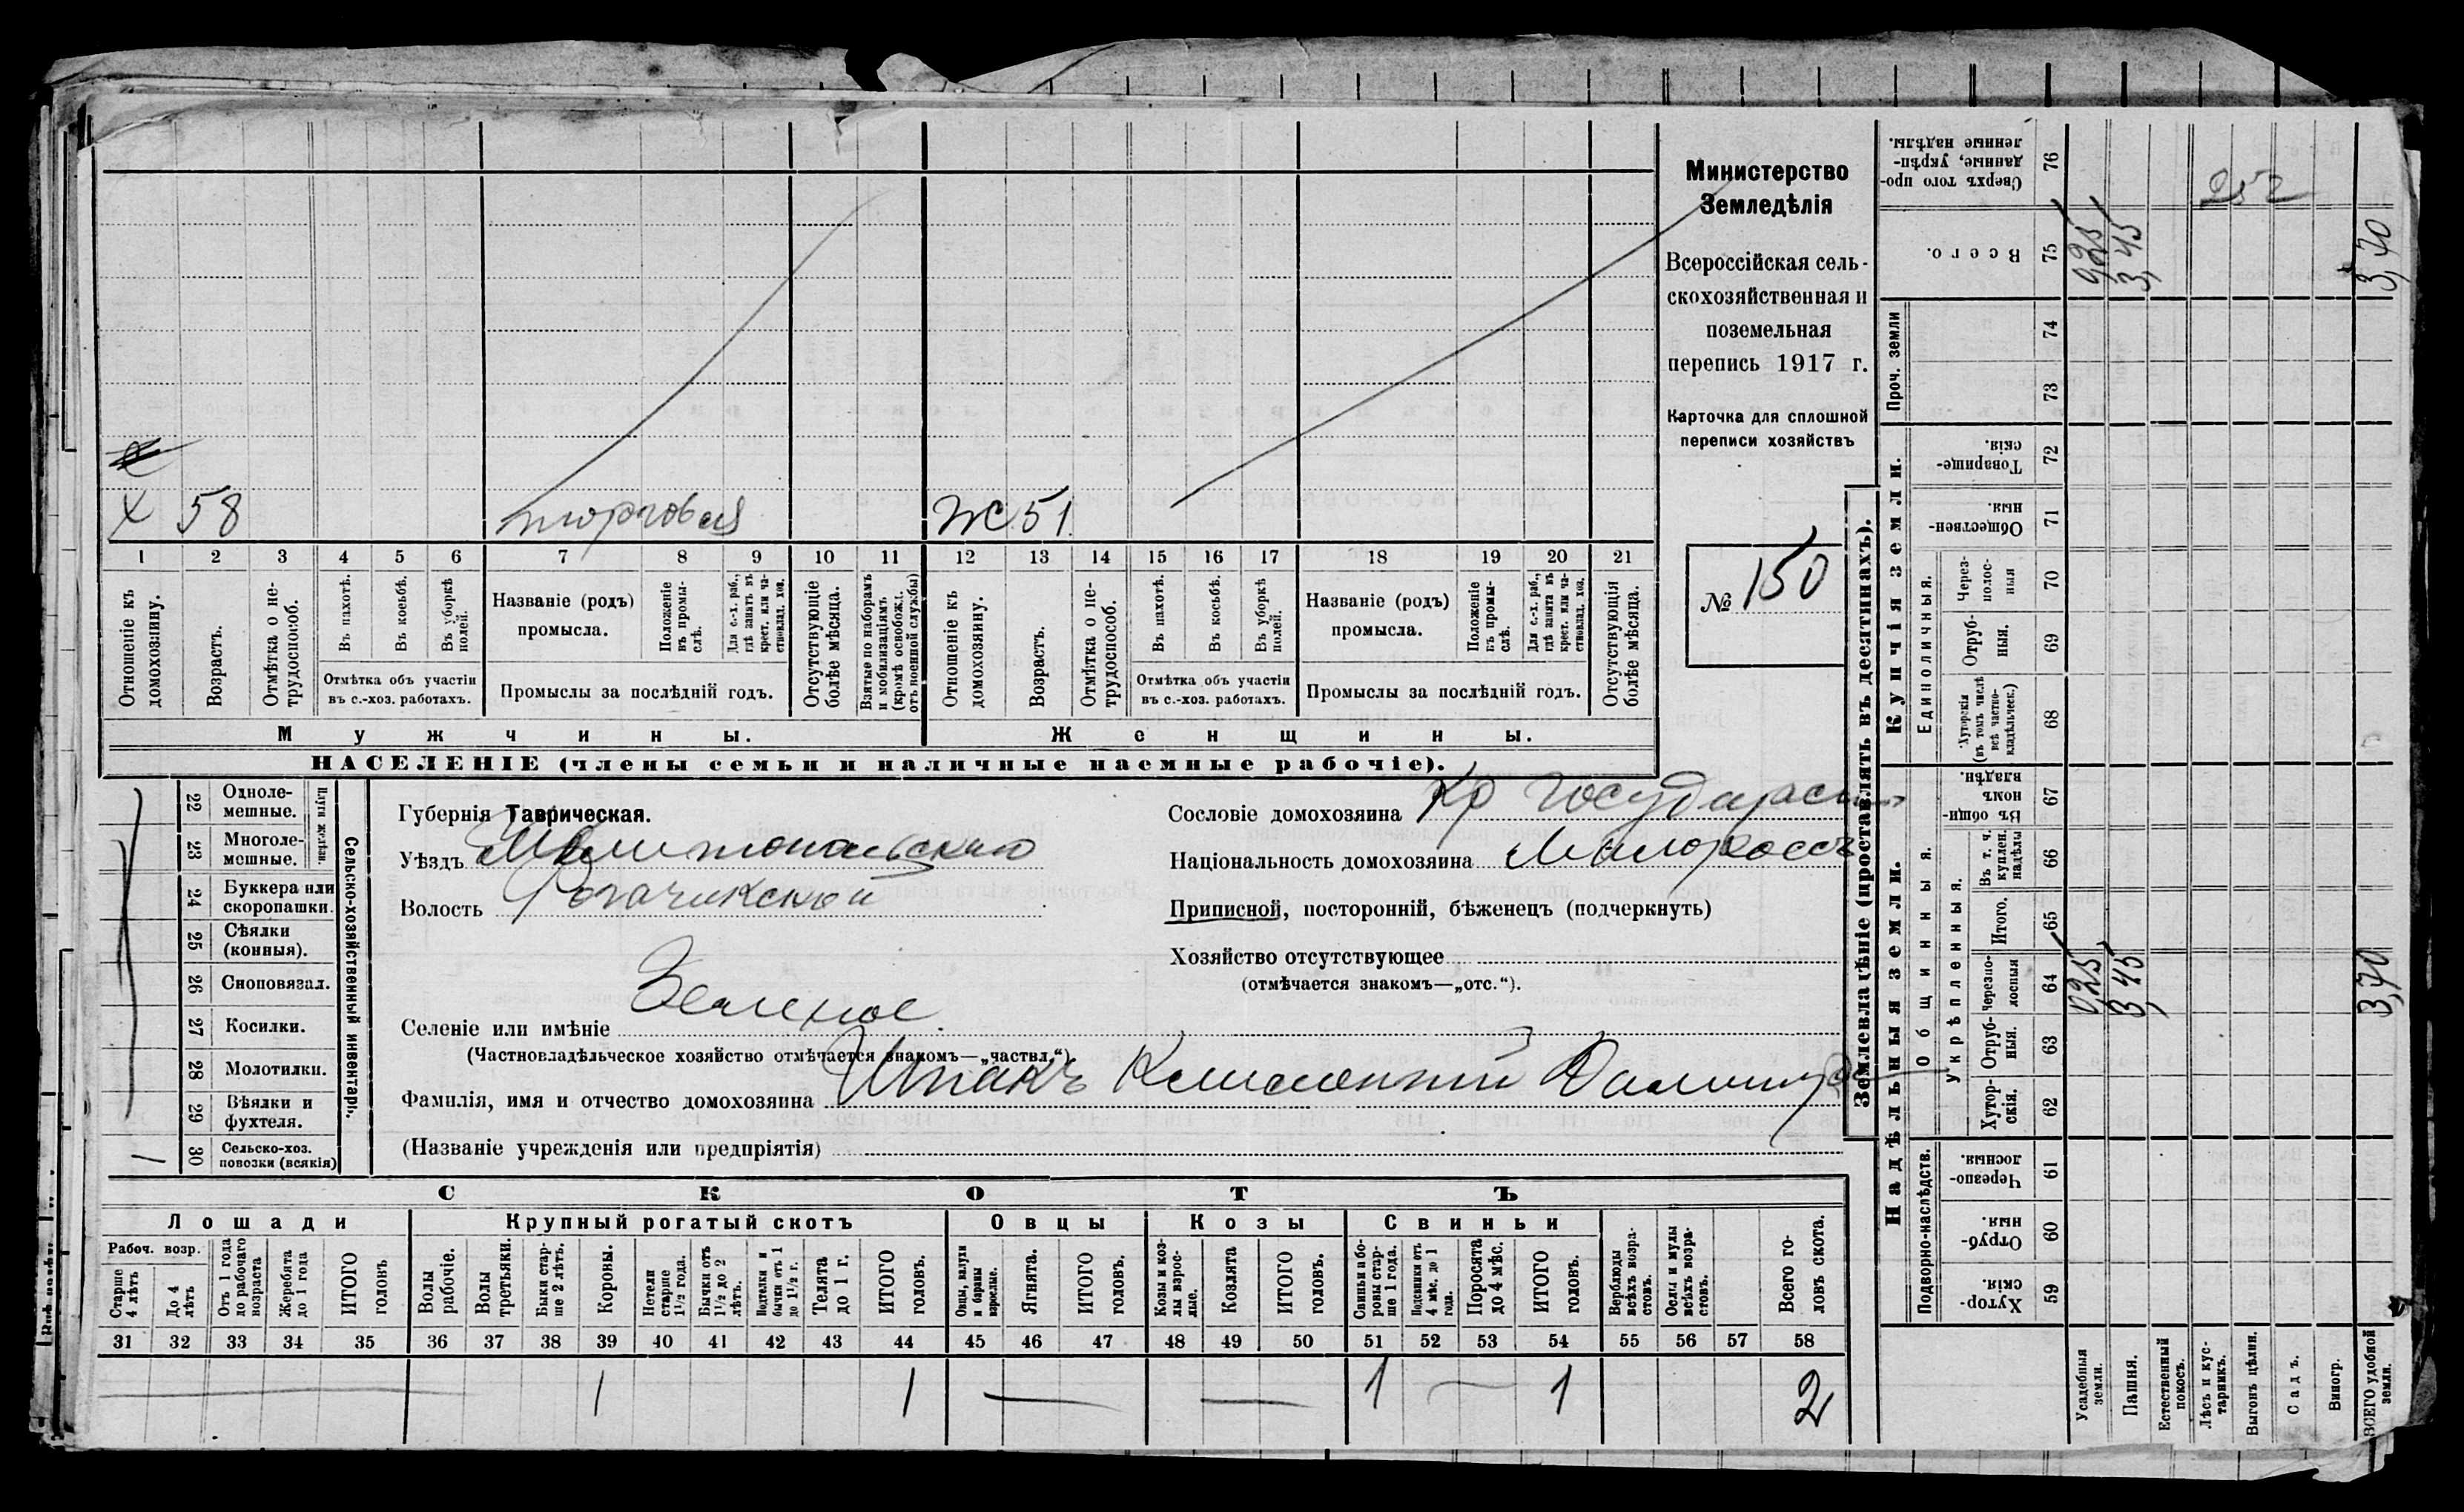 Министерство
Земледѣлія
Всероссійская сель-
скохозяйственная и
поземельная
перепись 1917 г.
Карточка для сплошной
переписи хозяйствъ
№ 150
х 58 торговля Ж 51
1 2 3 4 5 6 7 8 9 10 11 12 13 14 15 16 17 18 19 20 21
Отношеніе къ домохозяину.
Возрастъ.
Отмѣтка о не-трудоспособ.
Въ пахотѣ.
Въ косьбѣ.
Въ уборкѣ полей.
Отмѣтка объ участіи
въ с.-хоз. работахъ.
Названіе (родъ)
промысла.
Положеніе въ промы-слѣ.
Для с.-х. раб., гдѣ занятъ въ крест. или ча-стновлад. хоз.
Промыслы за послѣдній годъ.
Отсутствующіе болѣе мѣсяца.
Взятые по наборамъ и мобилизаціямъ (кромѣ освобожд. отъ военной службы)
Отношеніе къ домохозяину.
Возрастъ.
Отмѣтка о не-трудоспособ.
Въ пахотѣ.
Въ косьбѣ.
Въ уборкѣ полей.
Отмѣтка объ участіи
въ с.-хоз. работахъ.
Названіе (родъ)
промысла.
Положеніе въ промы-слѣ.
Для с.-х. раб., гдѣ занята въ крест. или ча-стновлад. хоз.
Промыслы за послѣдній годъ.
Отсутствующія болѣе мѣсяца.
Мужчины. Женщины.
НАСЕЛЕНІЕ (члены семьи и наличные наемные рабочіе).
Сельско-хозяйственный инвентарь.
Плуги желѣзн.
22 Одноле-мешные.
23 Многоле-мешные.
24 Буккера или скоропашки.
25 Сѣялки (конныя).
26 Сноповязал.
27 Косилки.
28 Молотилки.
29 Вѣялки и фухтеля.
30 Сельско-хоз. повозки (всякія)
Губернія Таврическая.
Уѣздъ Мелитопольскаго
Волость Рогачикской
Селеніе или имѣніе Зеленое
(Частновладѣльческое хозяйство отмѣчается знакомъ—„частвл.“)
Фамилія, имя и отчество домохозяина Шпакъ Климентій
(Названіе учрежденія или предпріятія)
Сословіе домохозяина Кр государст
Національность домохозяина Малороссъ
Приписной, посторонній, бѣженецъ (подчеркнуть)
Хозяйство отсутствующее
(отмѣчается знакомъ—„отс.“).
СКОТЪ
Лошади Крупный рогатый скотъ Овцы Козы Свиньи
Рабоч. возр.
Старше 4 лѣтъ
До 4 лѣтъ
Отъ 1 года до рабочаго возраста
Жеребята до 1 года
ИТОГО головъ
Волы рабочіе.
Волы третьяки.
Быки стар-ше 2 лѣтъ.
Коровы.
Нетели старше 1½ года.
Бычки отъ 1½ до 2 лѣтъ.
Подтелки и бычки отъ 1 до 1½ г.
Телята до 1 г.
ИТОГО головъ.
Овцы, валухи и бараны взрослые.
Ягнята.
ИТОГО головъ.
Козы и коз-лы взрос-лые.
Козлята
ИТОГО головъ.
Свиньи и бо-ровы стар-ше 1 года.
Подсвинки отъ 4 мѣс. до 1 года.
Поросята до 4 мѣс.
ИТОГО головъ.
Верблюды всѣхъ возра-стовъ.
Ослы и мулы всѣхъ возра-стовъ.
Всего го-ловъ скота.
31 32 33 34 35 36 37 38 39 40 41 42 43 44 45 46 47 48 49 50 51 52 53 54 55 56 57 58
1 1 1 1 2
Землевладѣніе (проставлять въ десятинахъ).
Надѣльныя земли. Купчія земли.
Проч. земли
Подворно-наслѣдств.
Общинныя.
Укрѣпленныя.
Единоличныя.
59 Хутор-скія.
60 Отруб-ныя.
61 Черезпо-лосныя.
62 Хутор-скія.
63 Отруб-ныя.
64 Черезпо-лосныя 0,25 3,45 3,70
65 Итого.
66 Въ т. ч. куплен. надѣлы
67 Въ общин-номъ владѣн.
68 Хуторскія (въ томъ числѣ всѣ частно-владѣльческ.)
69 Отруб-ныя.
70 Через-полос-ныя
71 Обществен-ныя.
72 Товарище-скія.
73
74
75 Всего. 0,25 3,45 3,70
76 Сверхъ того про-данные, укрѣп-ленные надѣлы.
Усадебныя земли.
Пашня.
Естественный покосъ.
Лѣсъ и кус-тарникъ.
Выгонъ цѣлин.
Садъ.
Виногр.
ВСЕГО удобной земли.